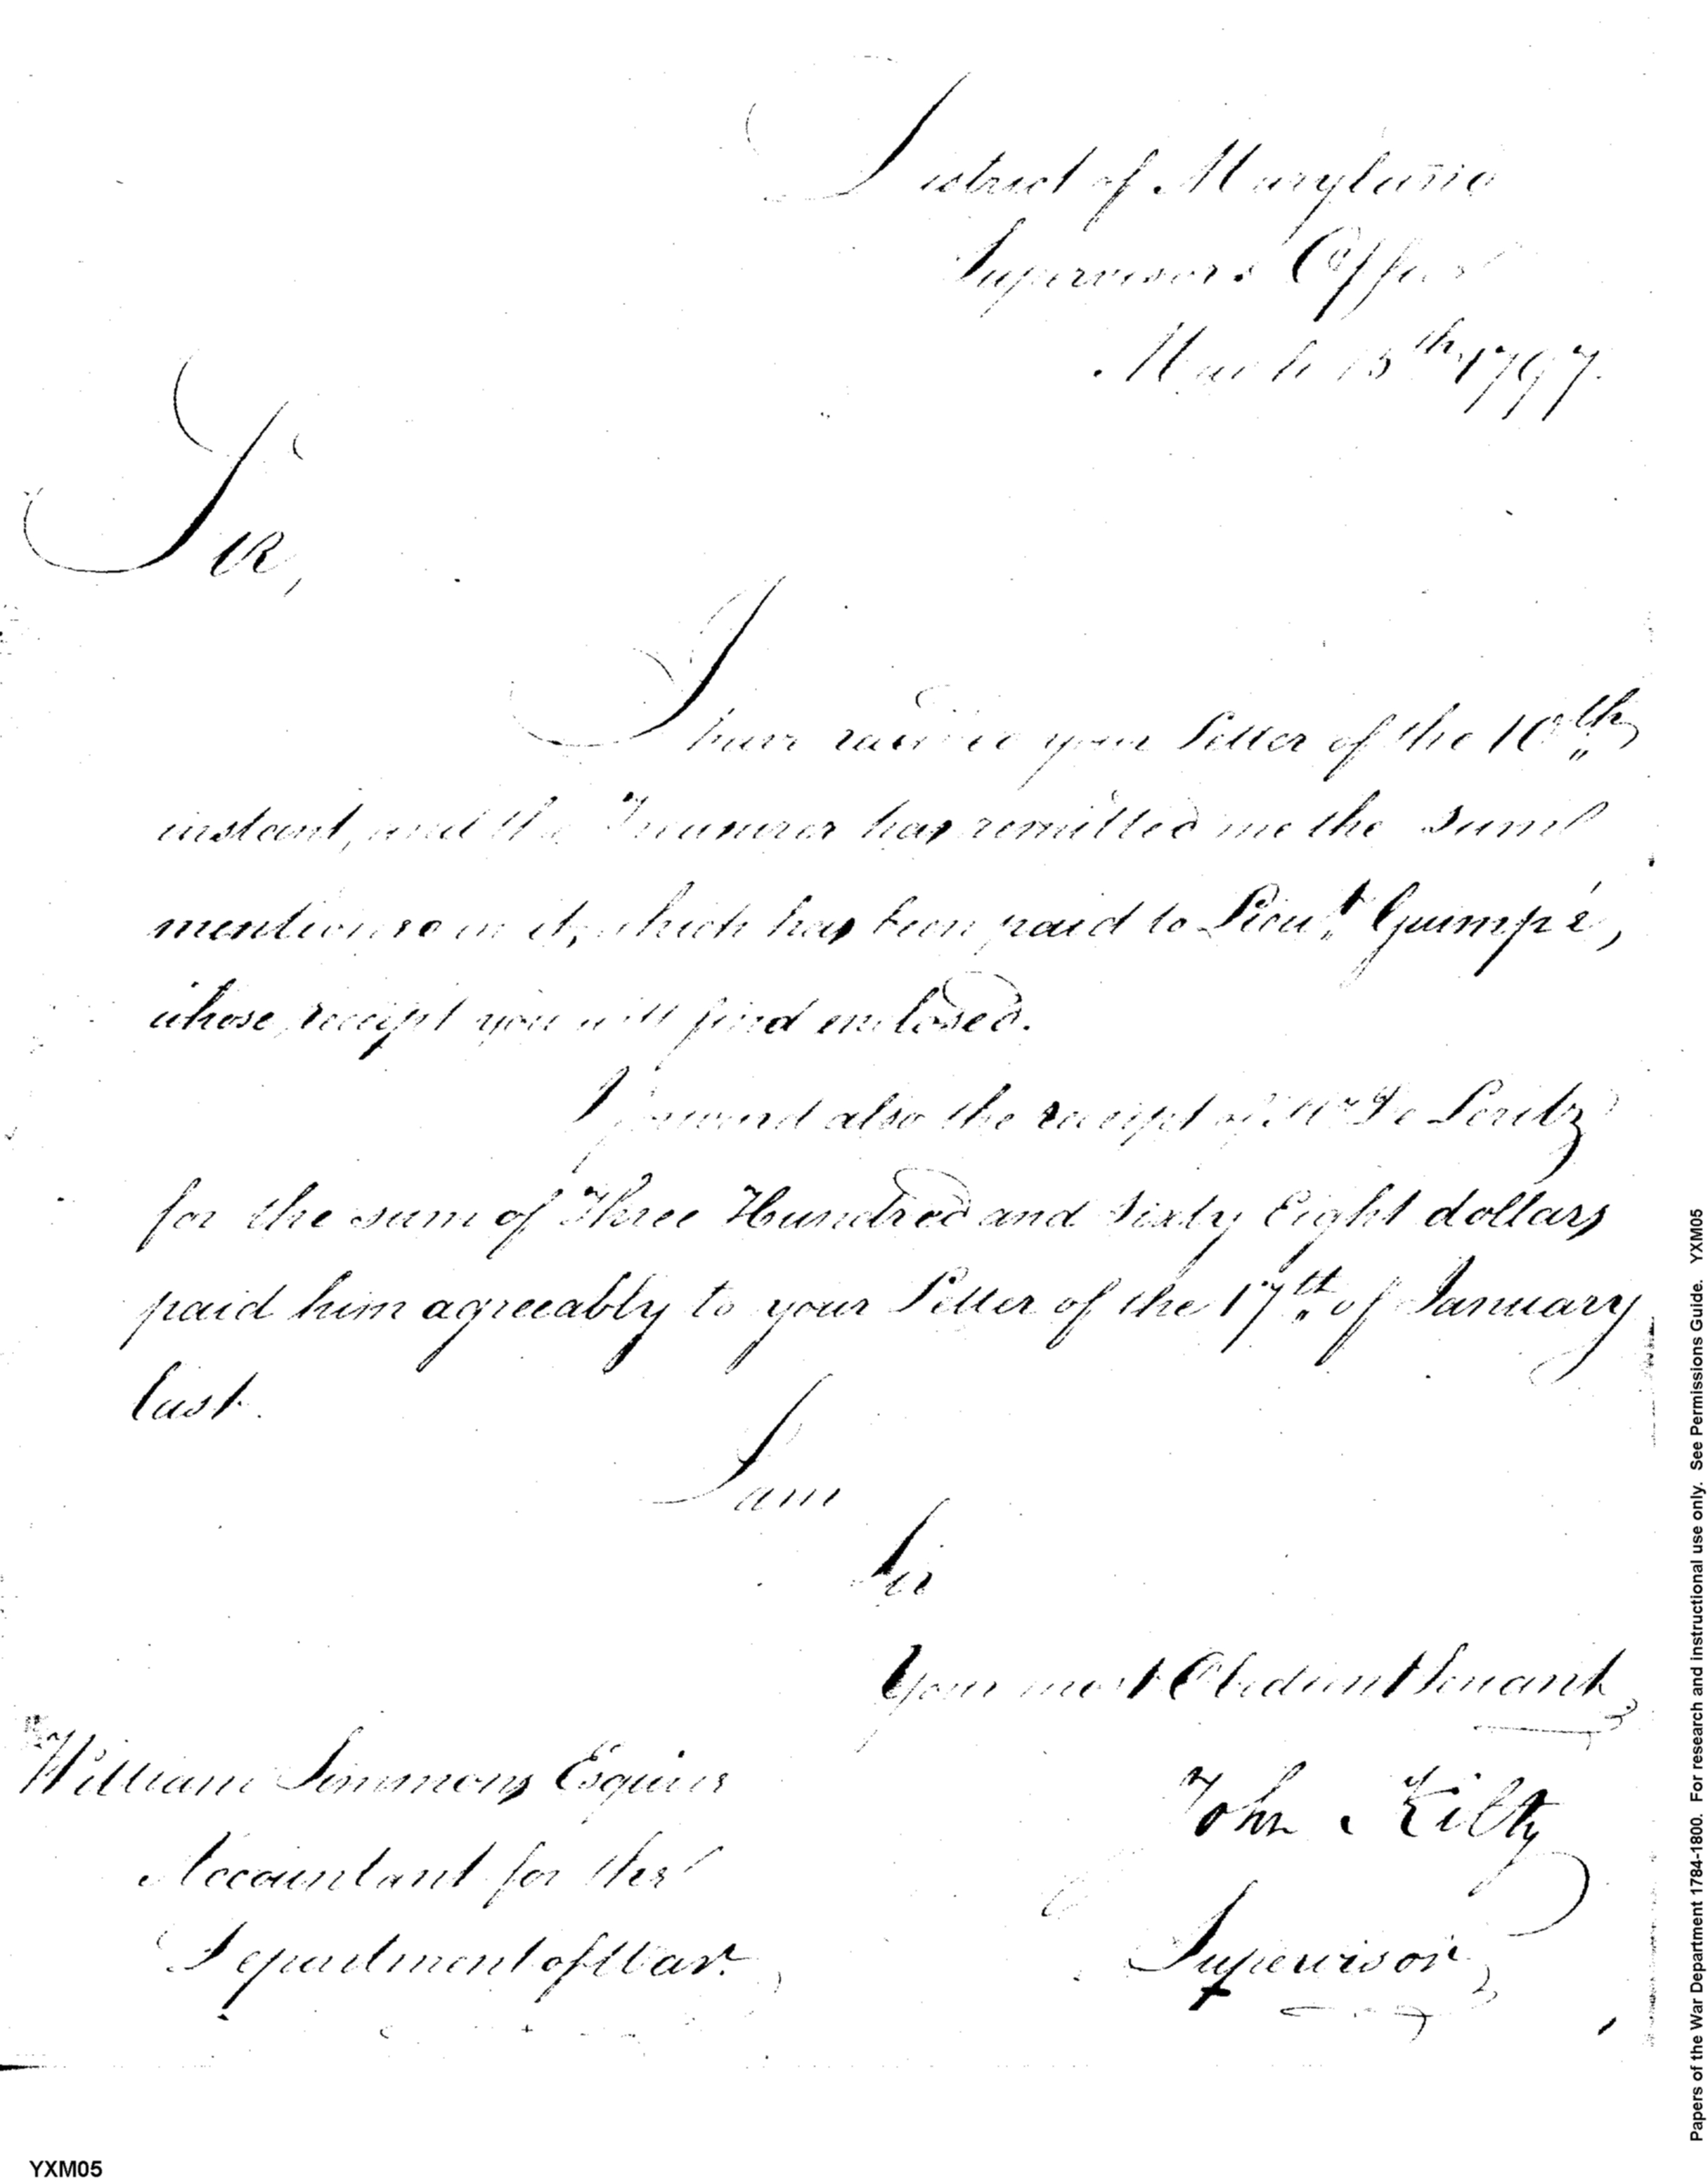 District of Maryland
Supervisors Office
March 15th 1797.
Sir,
I have received your Letter of the 10th
instant, and the Treasurer has remitted me the sum
mentioned in it, which has been paid to Lieut. Guimpé,
whose receipt you will find enclosed.
I forward also the receipt of Mr De Loritz
for the sum of Three Hundred and Sixty Eight dollars
paid him agreeably to your Letter of the 17th of January
last.
I am
Sir
Your most Obedient Servant
William Simmons Esquire
John Kilty
Accountant for the
Supervisor
Department of War.
YXM05
Papers of the War Department 1784-1800. For research and instructional use only. See Permissions Guide. YXM05